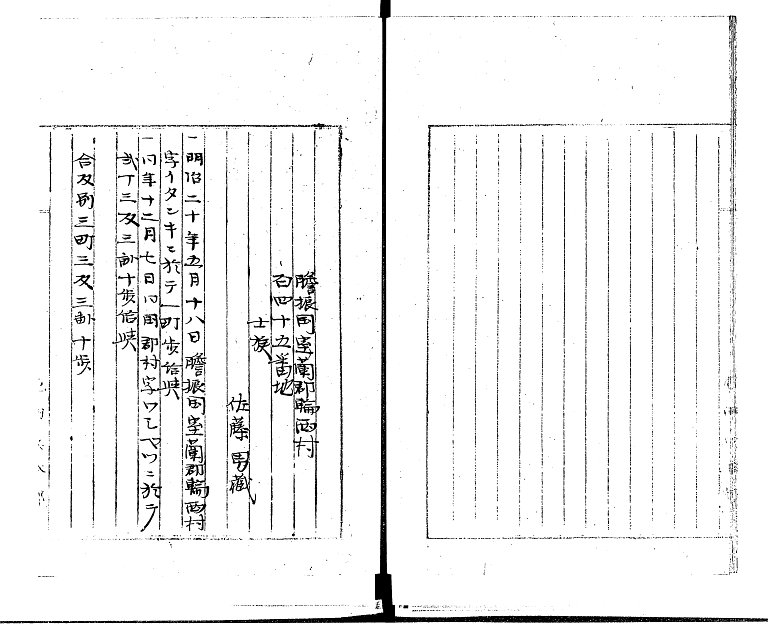 膽振国室蘭郡輪西村
百四十五番地
士族
佐藤男蔵
一明治二十年五月十八日膽振国室蘭郡輪西村
字イタンキニ於テ一町歩給与
一同年十二月七日同国郡村字ワシベツニ於テ
弐丁三反三畝十歩給与
合反別三町三反三畝十歩